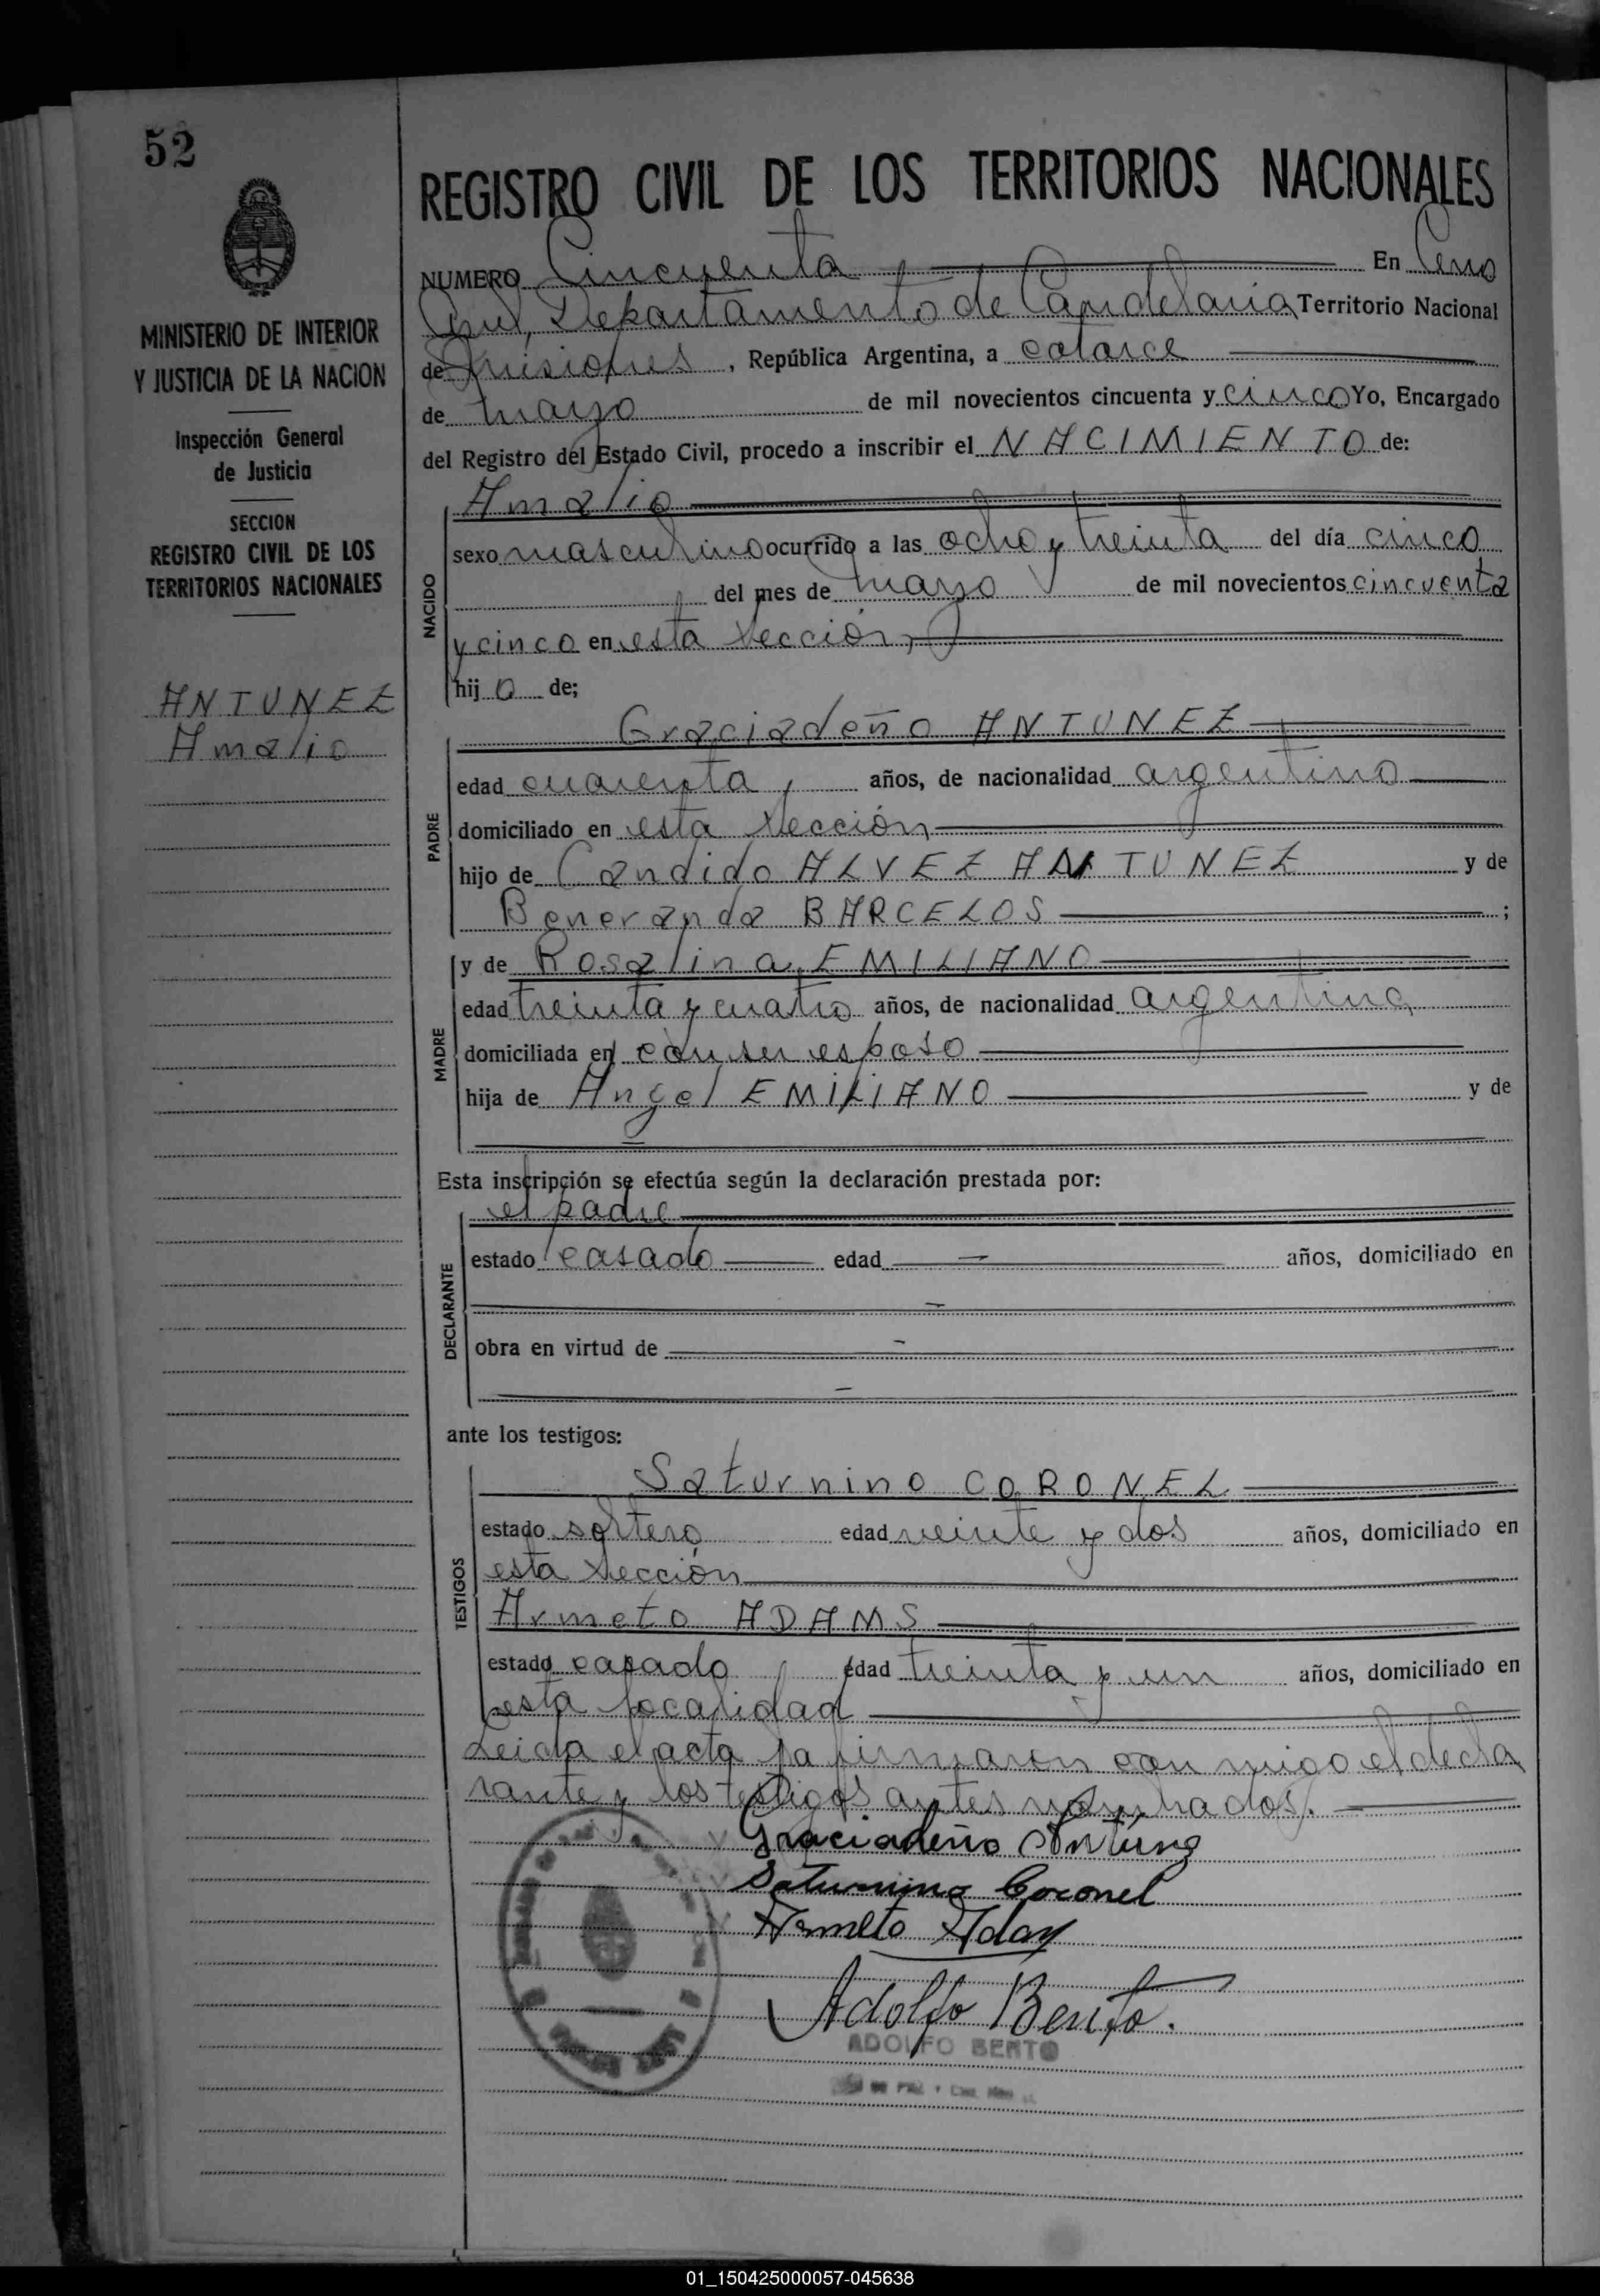 52
REGISTRO CIVIL DE LOS TERRITORIOS NACIONALES
NUMERO Cincuenta En Cerro
Corá, Departamento de Candelaria Territorio Nacional
de Misiones, República Argentina, a catorce
de mayo de mil novecientos cincuenta y cinco Yo, Encargado
del Registro del Estado Civil, procedo a inscribir el NACIMIENTO de:
MINISTERIO DE INTERIOR
Y JUSTICIA DE LA NACION
Inspección General
de Justicia
SECCION
REGISTRO CIVIL DE LOS
TERRITORIOS NACIONALES
ANTUNEZ
Amalio
NACIDO
Amalio
sexo masculino ocurrido a las ocho y treinta del día cinco
del mes de mayo de mil novecientos cincuenta
y cinco en esta Sección,
hijo de;
PADRE
Graciadeño ANTUNEZ
edad cuarenta años, de nacionalidad argentino
domiciliado en esta Sección
hijo de Candido ALVEZ ANTUNEZ y de
Beneranda BARCELOS ;
MADRE
y de Rosalina EMILIANO
edad treinta y cuatro años, de nacionalidad argentina
domiciliada en con su esposo
hija de Angel EMILIANO y de
Esta inscripción se efectúa según la declaración prestada por:
DECLARANTE
el padre
estado casado edad años, domiciliado en
obra en virtud de
ante los testigos:
TESTIGOS
Saturnino CORONEL
estado soltero edad veinte y dos años, domiciliado en
esta Sección
Armeto ADAMS
estado casado edad treinta y un años, domiciliado en
esta localidad
Leida el acta la firmaron con migo el decla
rante y los testigos antes nombrados.
Graciadeño Antunez
Saturnino Coronel
Armeto Adam
Adolfo Bento.
ADOLFO BENTO
01_150425000057-045638